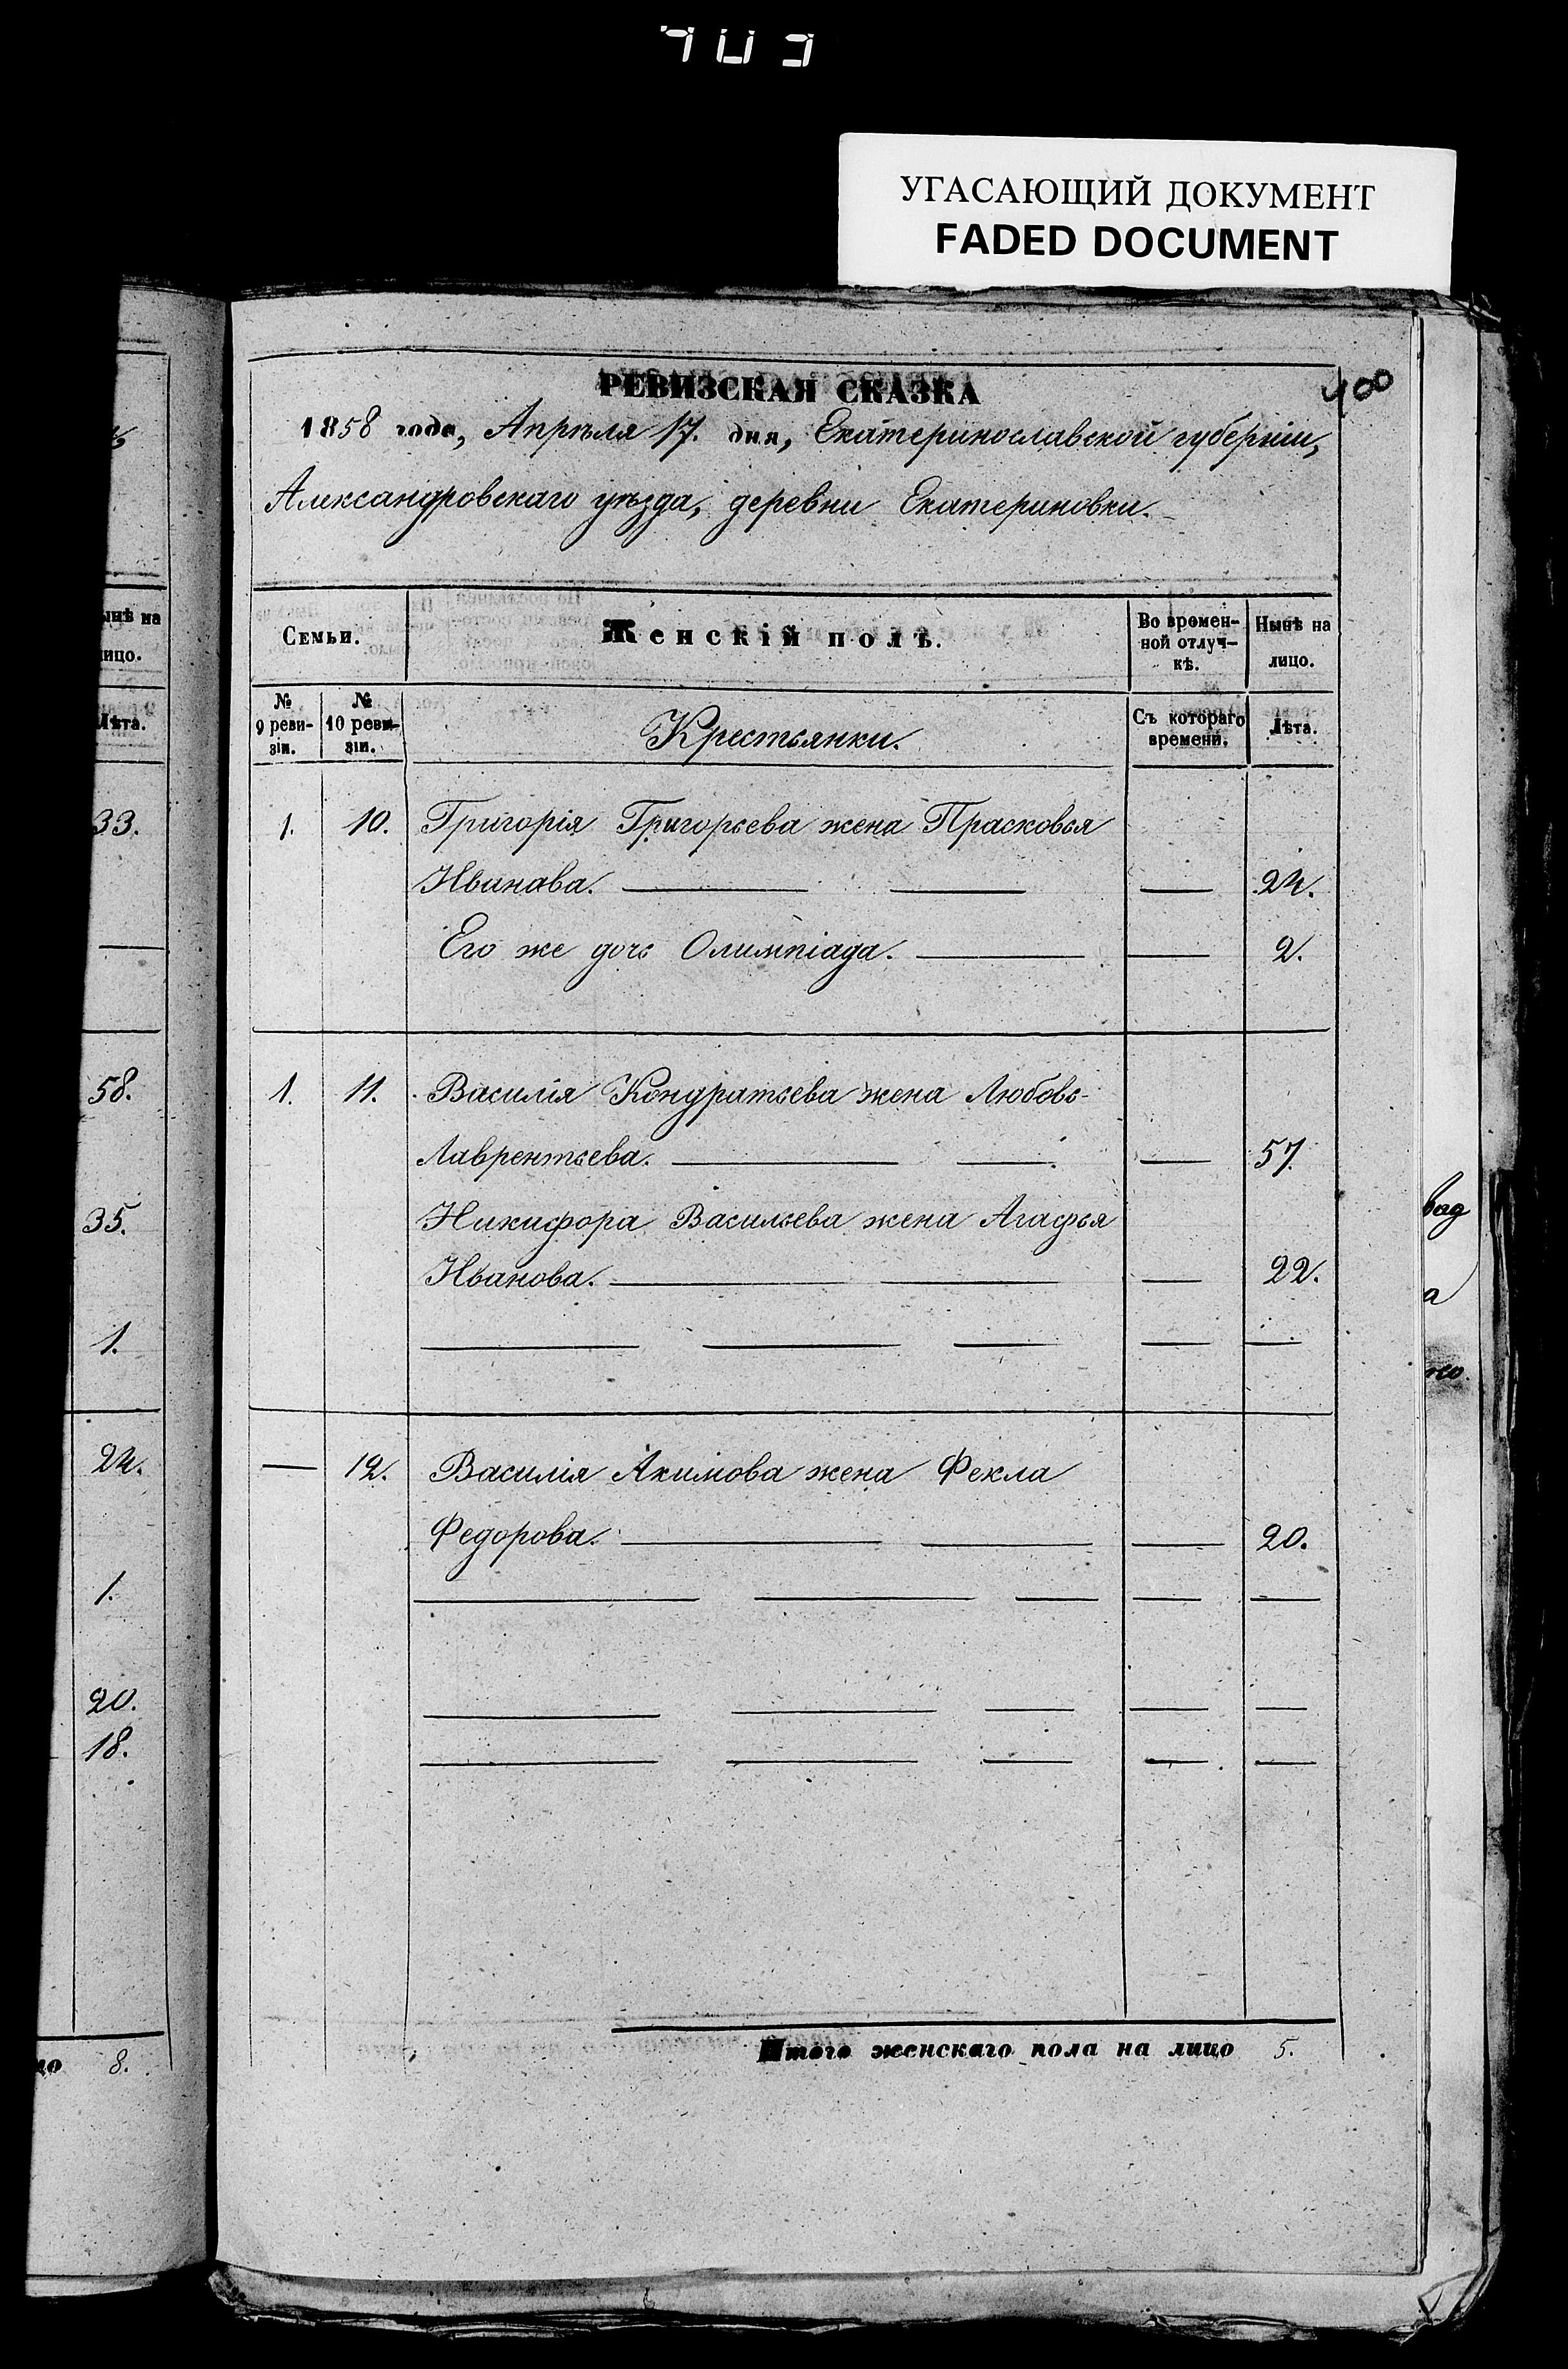 УГАСАЮЩИЙ ДОКУМЕНТ
FADED DOCUMENT
РЕВИЗСКАЯ СКАЗКА
400
1858 года, Апрѣля 17. дня, Екатеринославской губерніи,
Александровскаго уѣзда, деревни Екатериновки.
Семьи.
Женскій полъ.
Во времен-
ной отлуч-
кѣ.
Нынѣ на
лицо.
№
9 реви-
зіи.
№
10 реви-
зіи.
Крестьянки.
Съ котораго
времени.
Лѣта.
1. 10. Григорія Григорьева жена Прасковья
Иванава. 24.
Его же дочь Олимпіада. 2.
1. 11. Василія Кондратьева жена Любовь
Лаврентьева. 57.
Никифора Васильева жена Агафья
Иванова. 22.
12. Василія Акимова жена Фекла
Федорова. 20.
Итого женскаго пола на лицо 5.
ынѣ на
лицо.
Лѣта.
33.
58.
35.
1.
24.
1.
20.
18.
цо 8.
вад
а